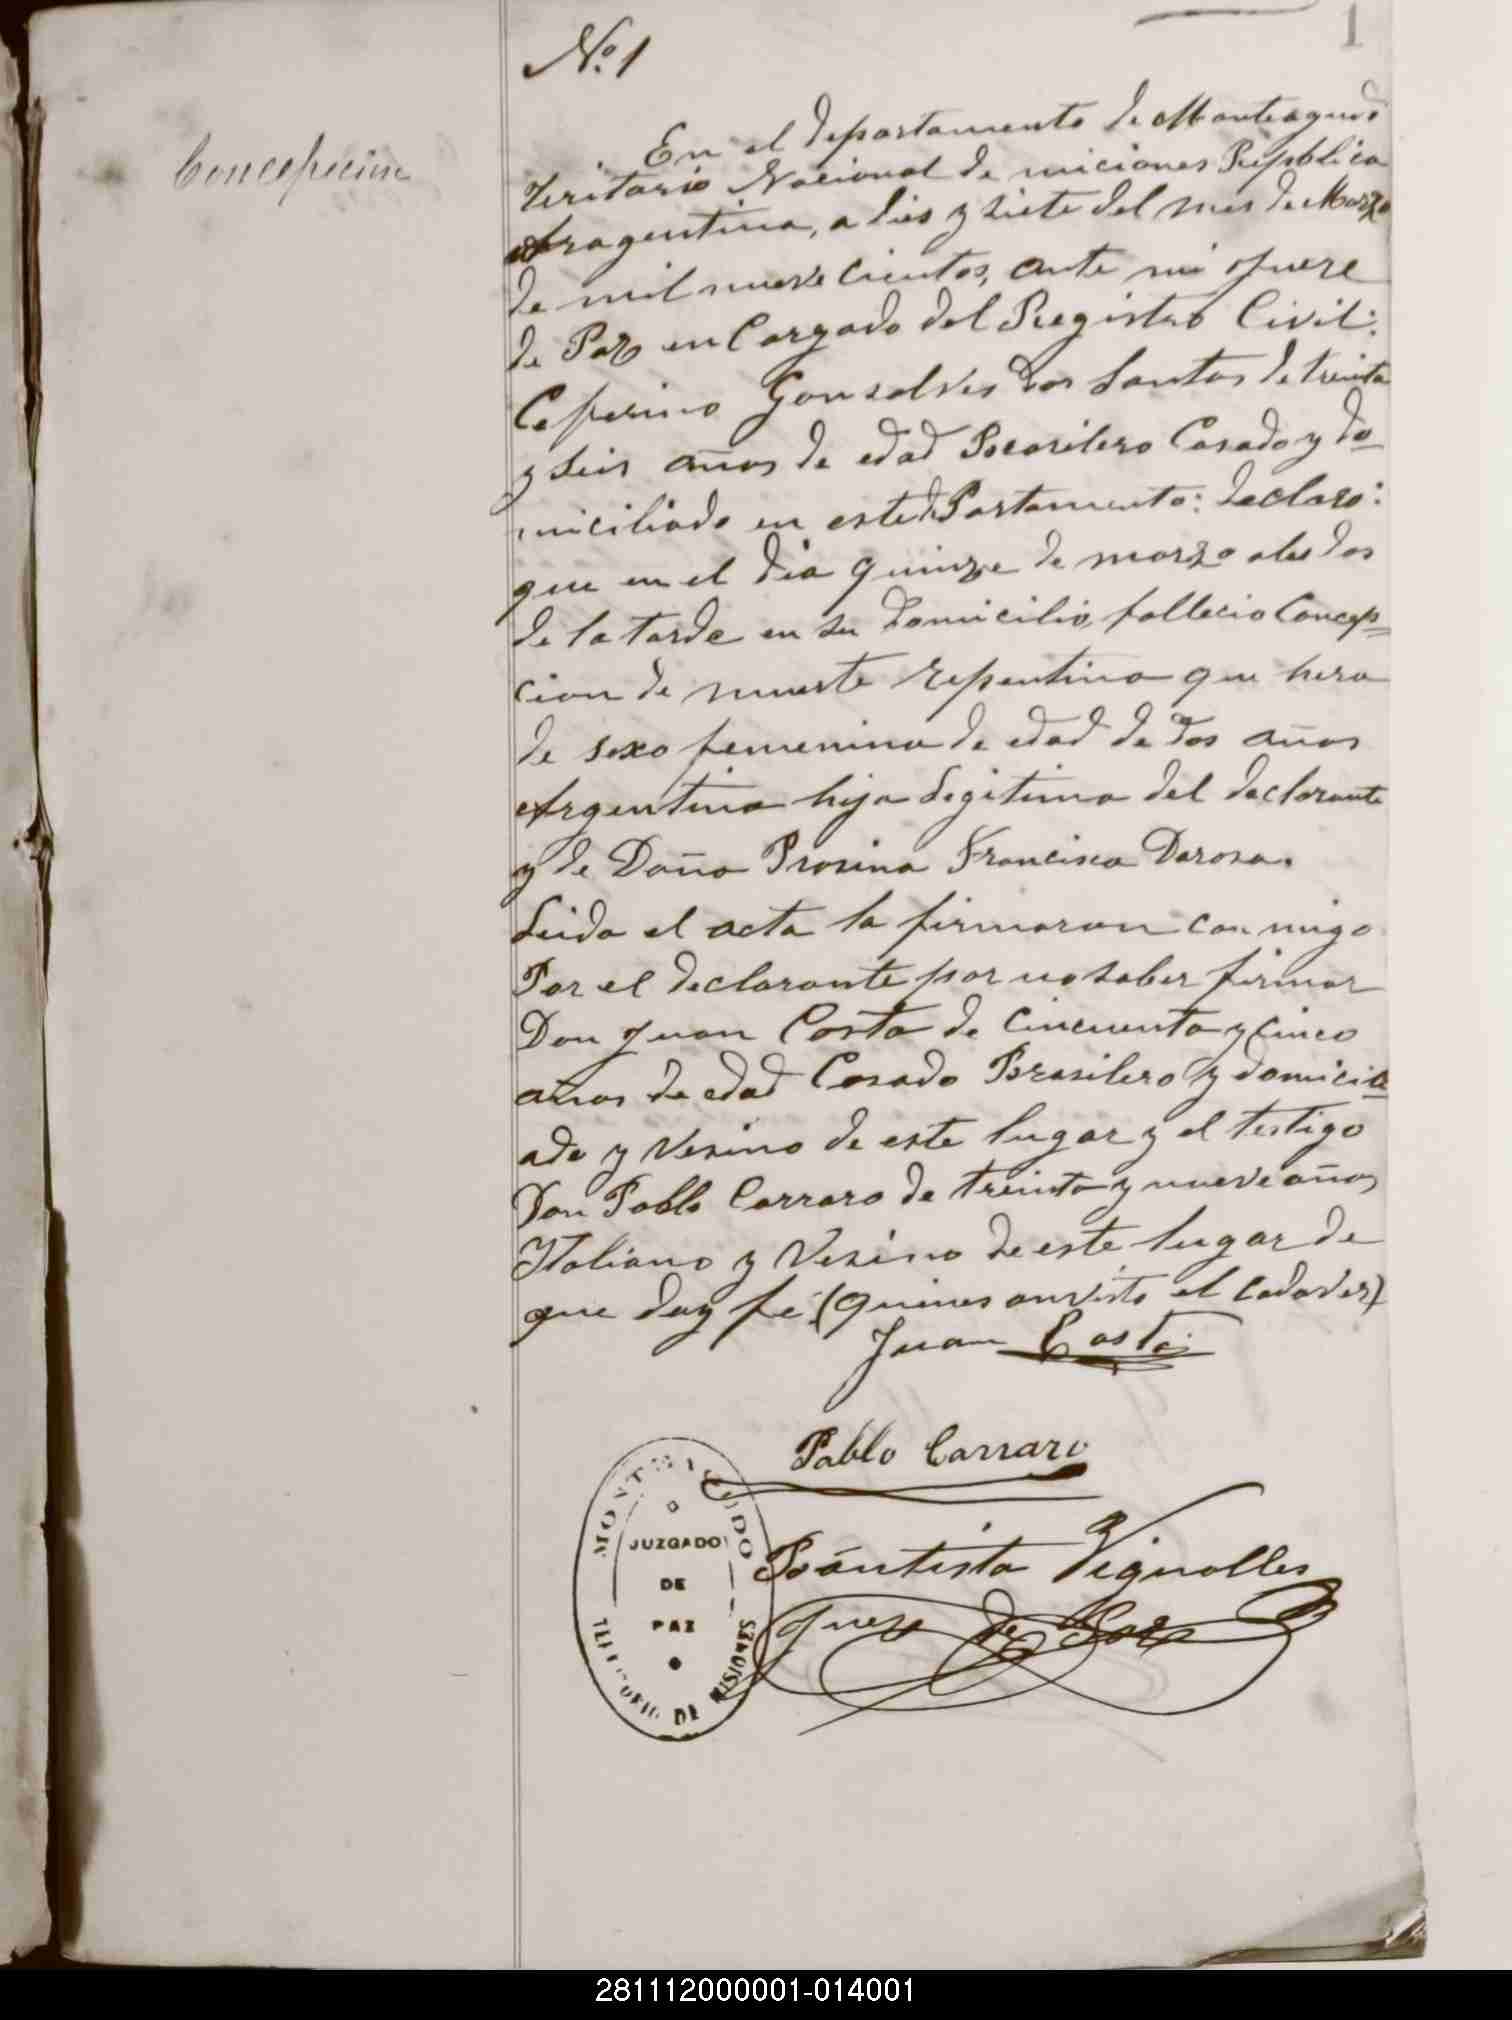 1
Nº 1
Concepcion
En el departamento de Monteagudo
Teritorio Nacional de miciones Republica
Aragentina, a dies y siete del mes de Marzo
de mil nueve cientos, ante mi Juese
de Paz en Cargado del Registro Civil:
Ceferino Gonsalves dos Santos de treinta
y seis años de edad Brasilero Casado y do-
miciliado en este dPartamento: declaro:
que en el dia quinze de marzo a las dos
de la tarde en su domicilio, fallecio Concep=
cion de muerte repentina que hera
de sexo femenino de edad de dos años
Argentina hija Legitima del declarante
y de Doña Rosina Francisca Darosa.
Leida el acta la firmaron conmigo
Por el declarante por no saber firmar
Don Juan Costa de Cincuenta y Cinco
años de edad Casado Brasilero y domicili
ado y Vesino de este lugar y el testigo
Don Pablo Carraro de treinta y nueve años
Italiano y Vesino de este lugar de
que doy fe (quienes an visto el Cadaver)
Juan Costa
Pablo Carraro
Bautista Vignolles
Juez de Paz
MONTEAGUDO
JUZGADO
DE
PAZ
TERRITORIO DE MISIONES
281112000001-014001